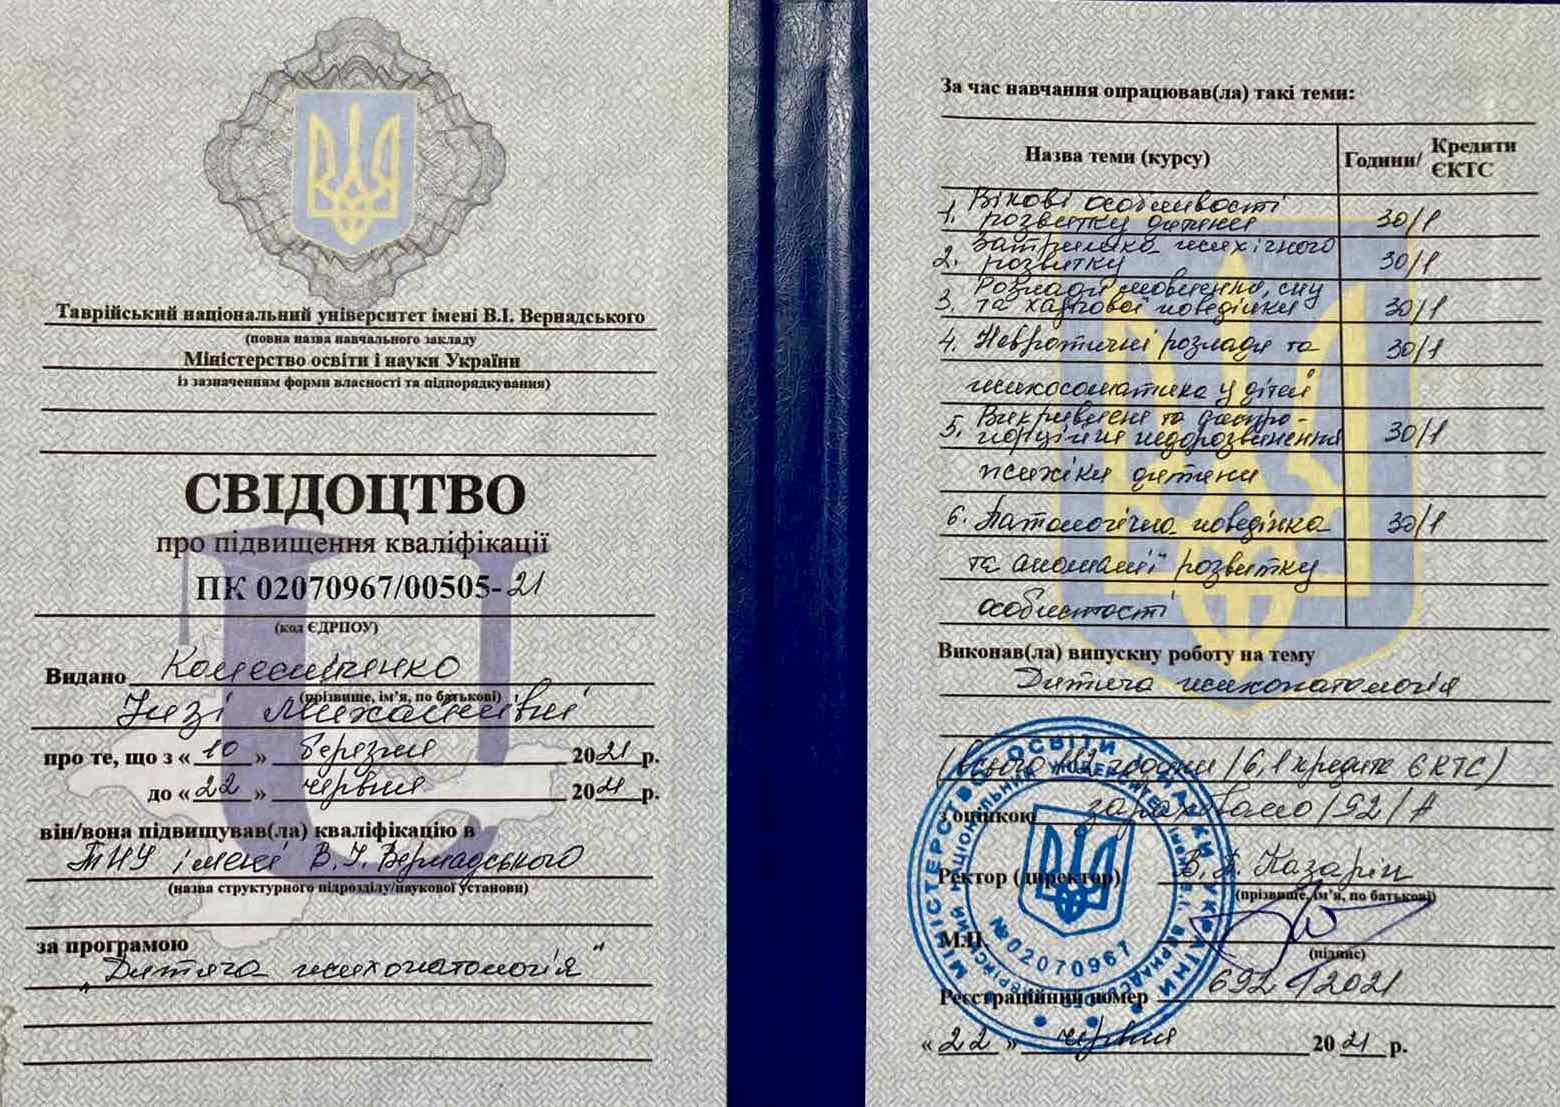 Таврійський національний університет імені В.І. Вернадського
(повна назва навчального закладу
Міністерство освіти і науки України
із зазначенням форми власності та підпорядкування)
СВІДОЦТВО
про підвищення кваліфікації
ПК 02070967/00505-21
(код ЄДРПОУ)
Видано
(прізвище, ім’я, по батькові)
Михайлівні
про те, що з « 10 » березня 2021 р.
до « 22 » червня 2021 р.
він/вона підвищував(ла) кваліфікацію в
ТНУ імені В.І. Вернадського
(назва структурного підрозділу/наукової установи)
за програмою
„Дитяча психопатологія“
За час навчання опрацював(ла) такі теми:
Назва теми (курсу) Години/ Кредити ЄКТС
1. Вікові особливості
розвитку дитини 30/1
2. Затримка психічного
розвитку 30/1
3. Розлади мовлення, сну
та харчової поведінки 30/1
4. Невротичні розлади та 30/1
психосоматика у дітей
5. Викривлені та диспро-
порційні недорозвинення 30/1
психіки дитини
6. Патологічна поведінка 30/1
та аномалії розвитку
особистості
Виконав(ла) випускну роботу на тему
Дитяча психопатологія
(всього години /6,1 кредит ЄКТС)
з оцінкою зараховано /92/ А
Ректор (директор) Казарін
(прізвище, ім’я, по батькові)
М.П.
(підпис)
Реєстраційний номер 692/2021
« 22 » червня 2021 р.
МІНІСТЕРСТВО ОСВІТИ І НАУКИ УКРАЇНИ
№ 02070967